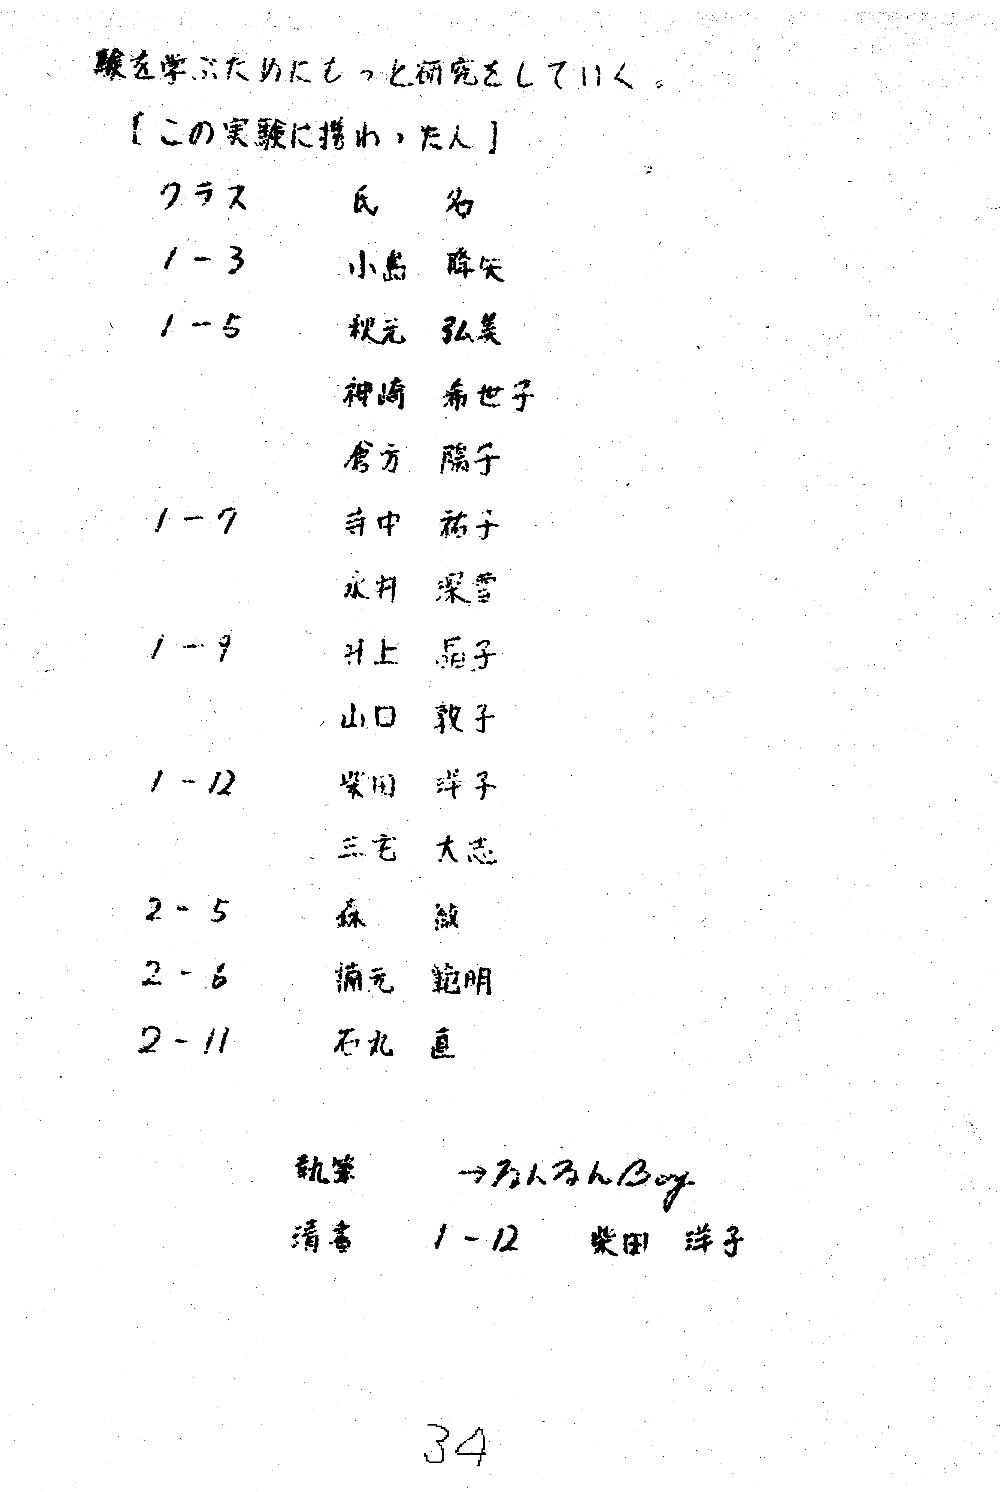 験を学ぶためにもっと研究をしていく。
[この実験に携わった人]
クラス 氏 名
1-3 小島 隆矢
1-5 秋元 弘美
神崎 希世子
倉方 陽子
1-7 寺中 祐子
永井 深雪
1-9 井上 晶子
山口 敦子
1-12 柴田 洋子
三宅 大志
2-5 森 敏
2-6 浦元 範明
2-11 石丸 直
執筆 →るんるんBoy
清書 1-12 柴田 洋子
34